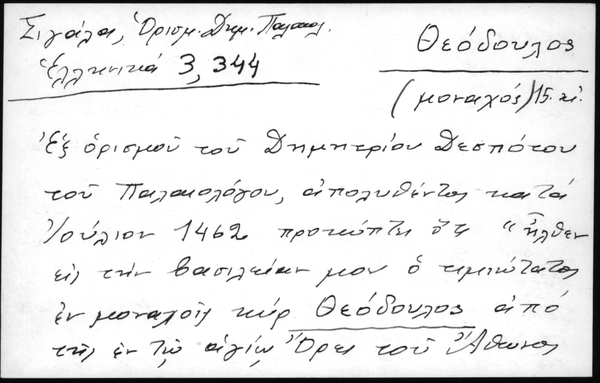 Σιγάλα, Ὁρισμ. Δημ. Παλαιολ.
Ἑλληνικά 3, 344
Θεόδουλος
(μοναχός) 15. αἰ.
Ἐξ ὁρισμοῦ τοῦ Δημητρίου Δεσπότου
τοῦ Παλαιολόγου, ἀπολυθέντος κατά
Ἰούλιον 1462 προκύπτει ὅτι "ἦλθεν
εἰς τήν βασιλείαν μου ὁ τιμιώτατος
ἐν μοναχοῖς κύρ Θεόδουλος ἀπό
τῆς ἐν τῷ ἁγίῳ Ὄρει τοῦ Ἄθωνος